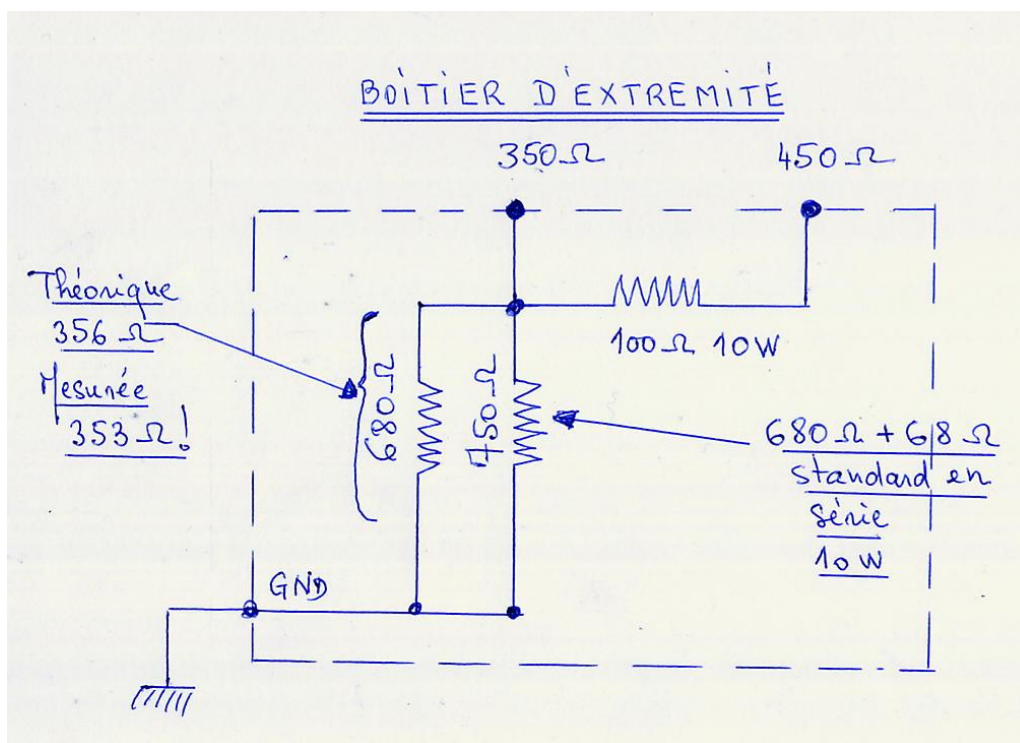 BOITIER D'EXTREMITÉ
350Ω
450Ω
Théorique
356Ω
Mesurée
353Ω!
680Ω
750Ω
100Ω 10W
680Ω + 68Ω
standard en
série
10W
GND